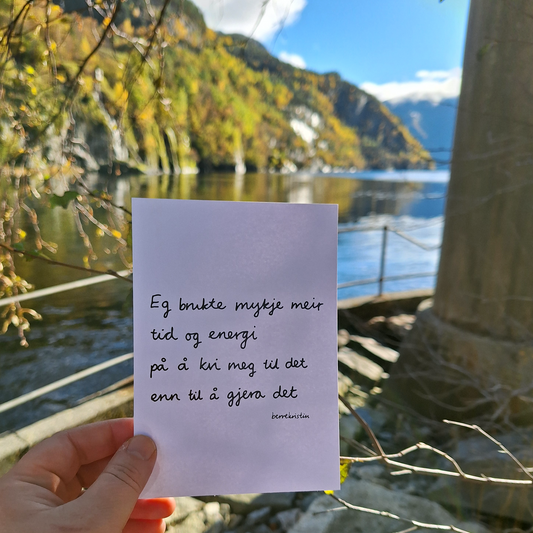 Eg brukte mykje meir
tid og energi
på å kvi meg til det
enn til å gjera det
berrekristin